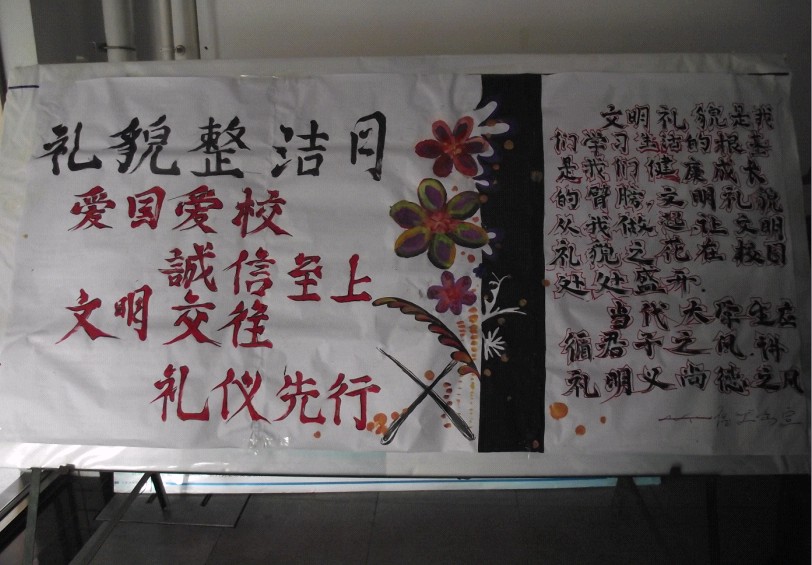 礼貌整洁月
爱国爱校
誠信至上
文明交往
礼仪先行
文明礼貌是我
们学习生活的根基
是我们健康成长
的臂膀,文明礼貌
从我做起.让文明
礼貌之花在校园
处处盛开.
当代大学生应
循君子之风.科
礼明义尚德之风